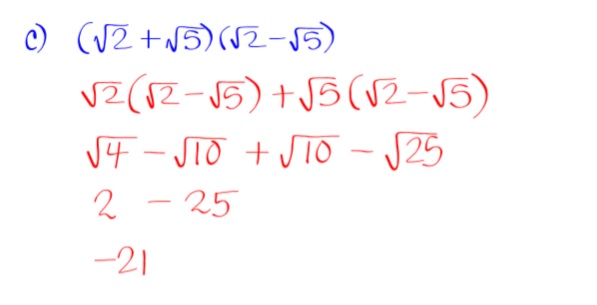 c) (√2 + √5)(√2 − √5)
√2(√2 − √5) + √5(√2 − √5)
√4 − √10 + √10 − √25
2 − 25
−21